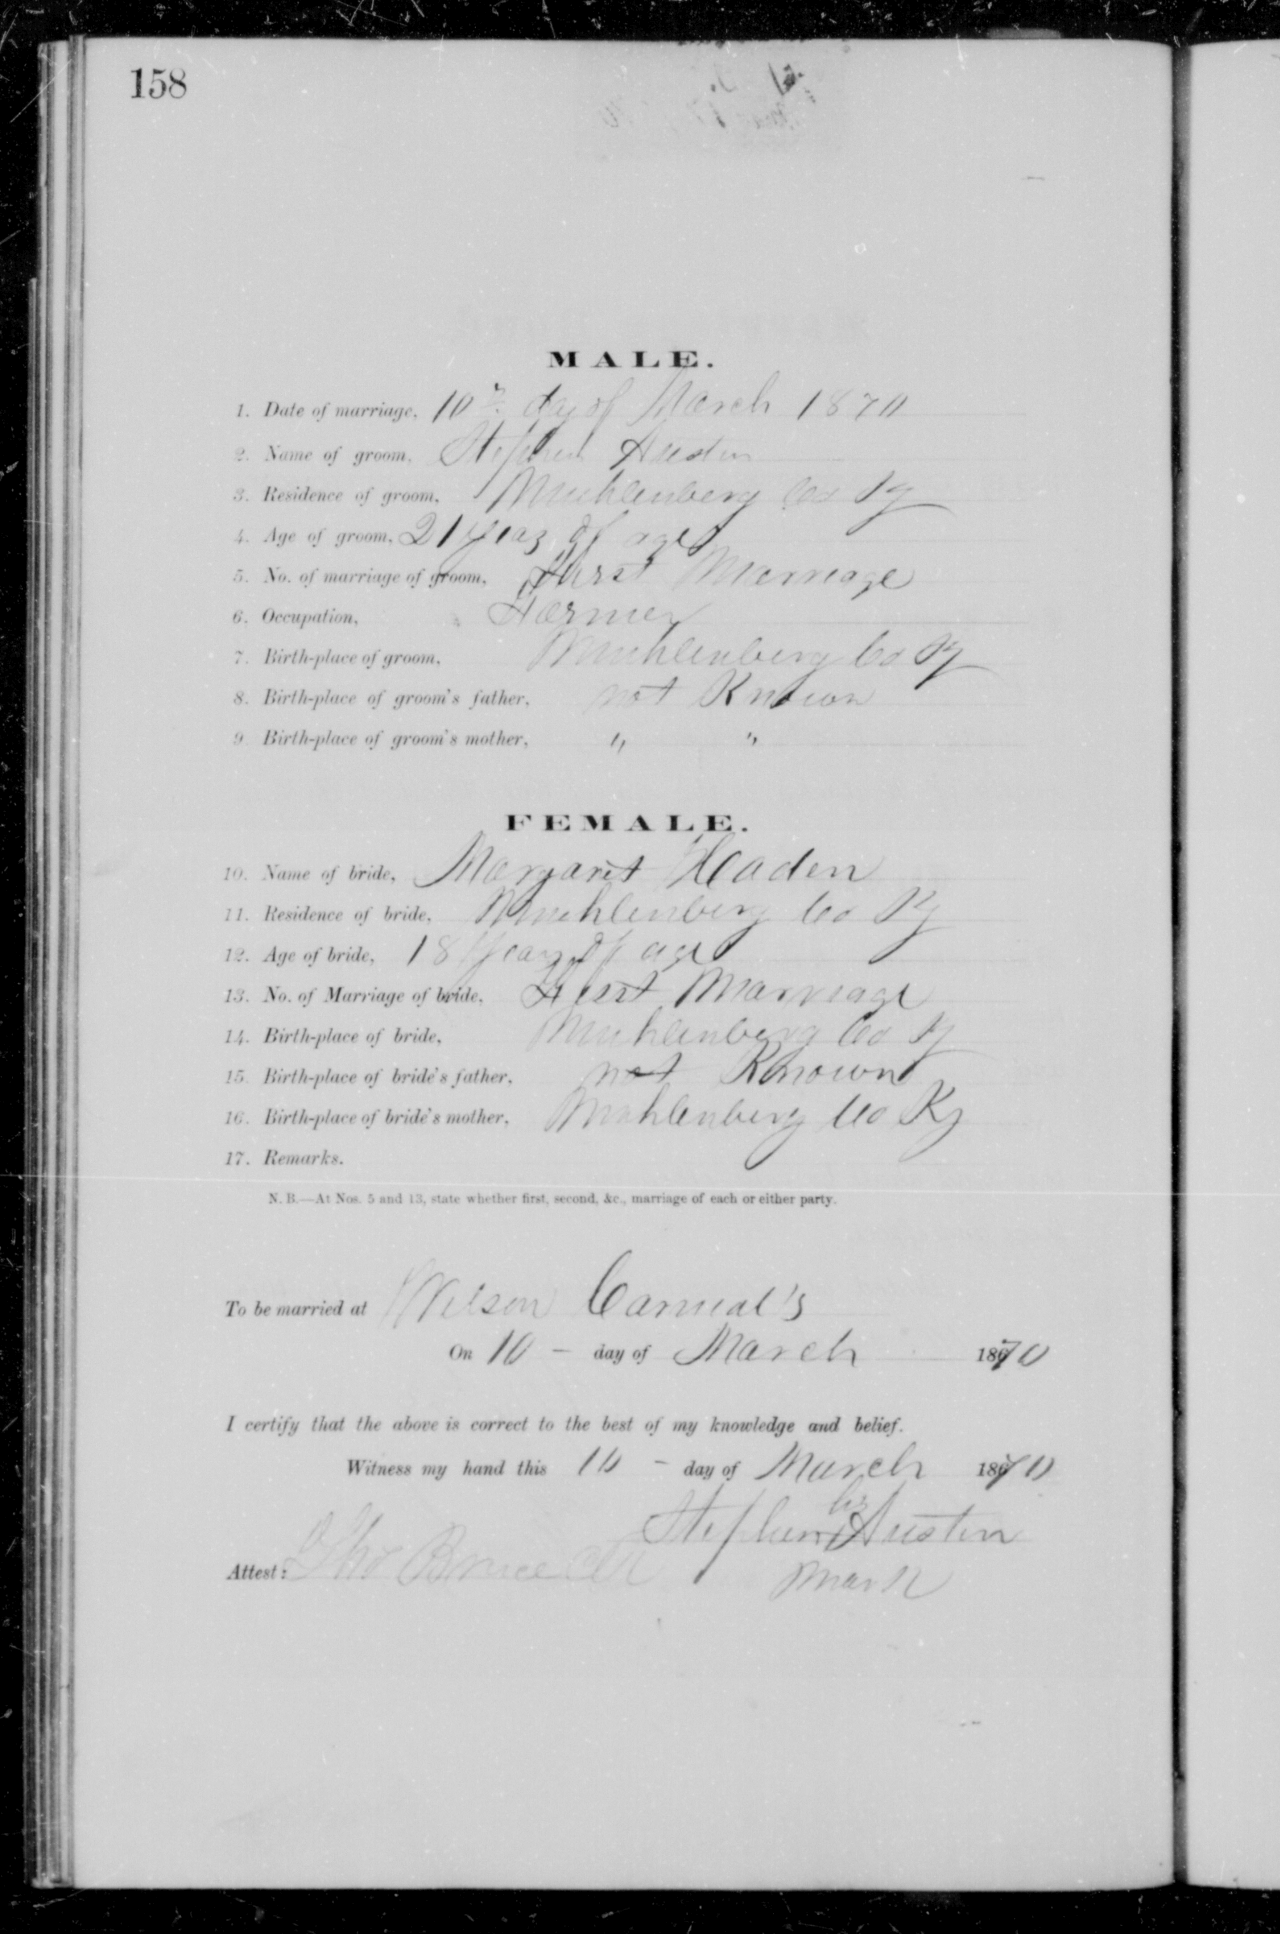 158
MALE.
1. Date of marriage, 10th day of March 1870
2. Name of groom, Stephen Austin
3. Residence of groom, Muhlenberg Co Ky
4. Age of groom, 21 years of age
5. No. of marriage of groom, First Marriage
6. Occupation, Farmer
7. Birth-place of groom, Muhlenberg Co Ky
8. Birth-place of groom's father, not Known
9. Birth-place of groom's mother, " "
FEMALE.
10. Name of bride, Margaret Haden
11. Residence of bride, Muhlenberg Co Ky
12. Age of bride, 18 years of age
13. No. of Marriage of bride, First Marriage
14. Birth-place of bride, Muhlenberg Co Ky
15. Birth-place of bride's father, not Known
16. Birth-place of bride's mother, Muhlenberg Co Ky
17. Remarks.
N. B.—At Nos. 5 and 13, state whether first, second, &c., marriage of each or either party.
To be married at Wilson
On 10 – day of March 1870
I certify that the above is correct to the best of my knowledge and belief.
Witness my hand this 10 – day of March 1870
his
Stephen X Austin
Attest: Tho Bruce Clk mark